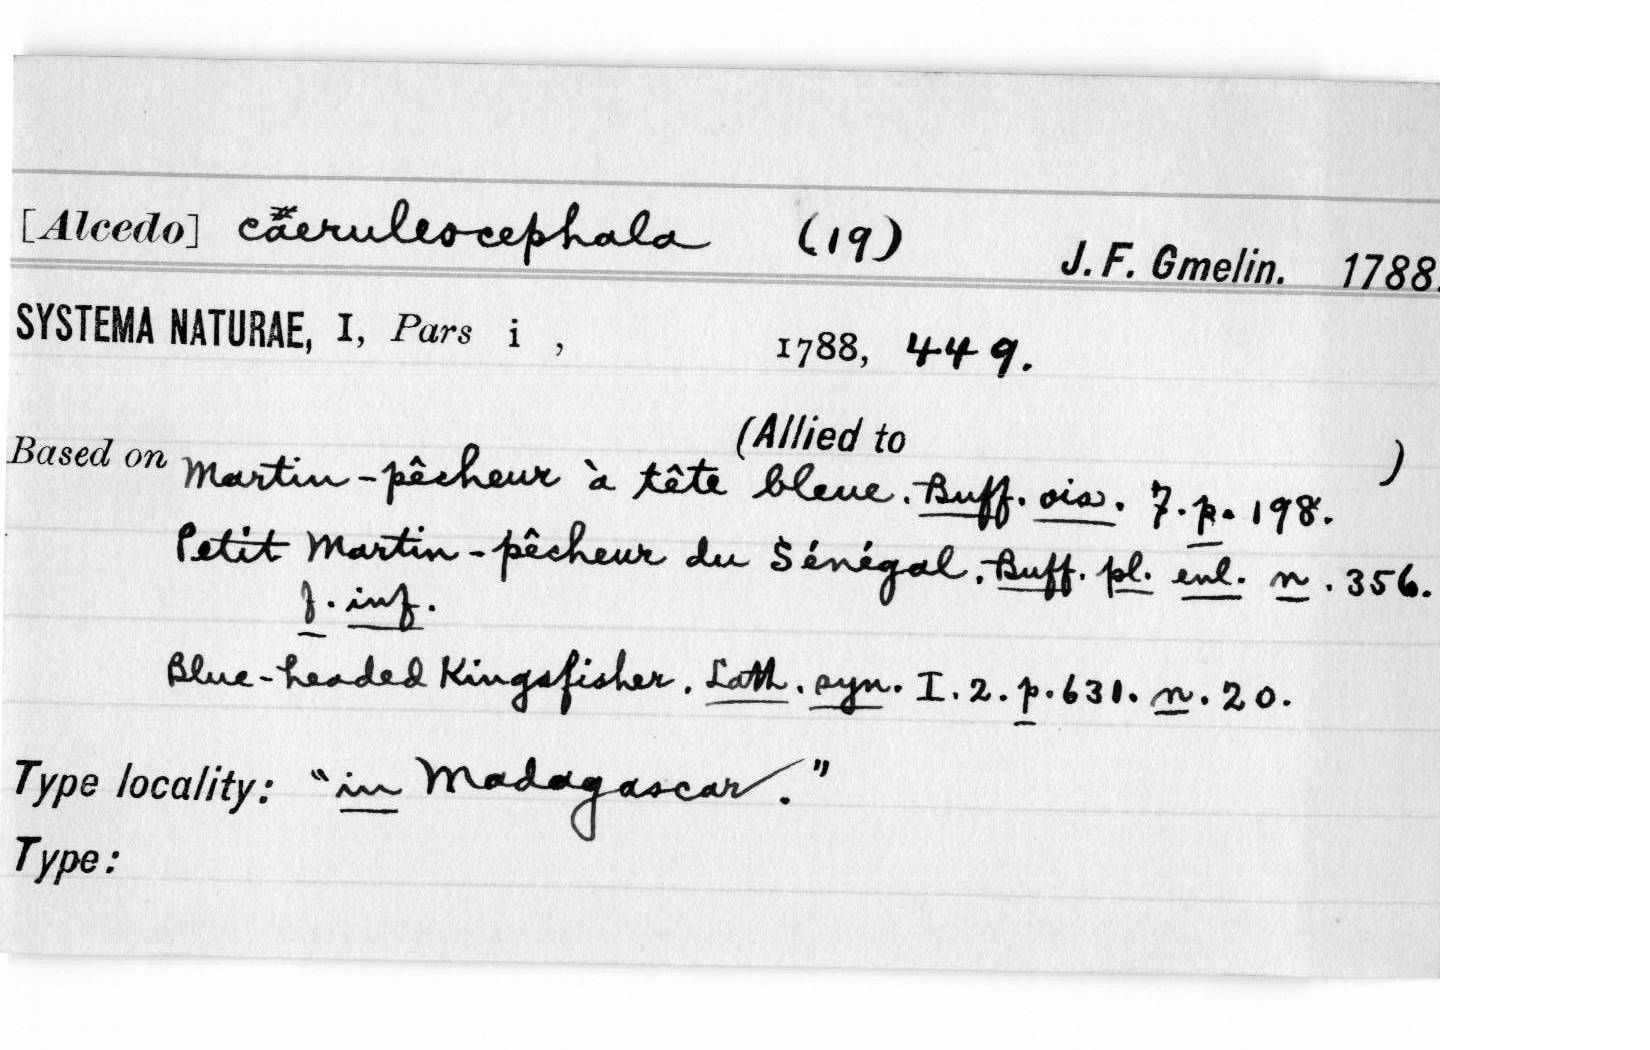 [Alcedo] caeruleocephala (19) J. F. Gmelin. 1788.
SYSTEMA NATURAE, I, Pars i , 1788, 449.
(Allied to )
Based on Martin-pêcheur à tête bleue. Buff. ois. 7. p. 198.
Petit Martin-pêcheur du Sénégal. Buff. pl. enl. n. 356.
f. inf.
Blue-headed Kingsfisher. Lath. syn. I. 2. p. 631. n. 20.
Type locality: "in Madagascar."
Type: